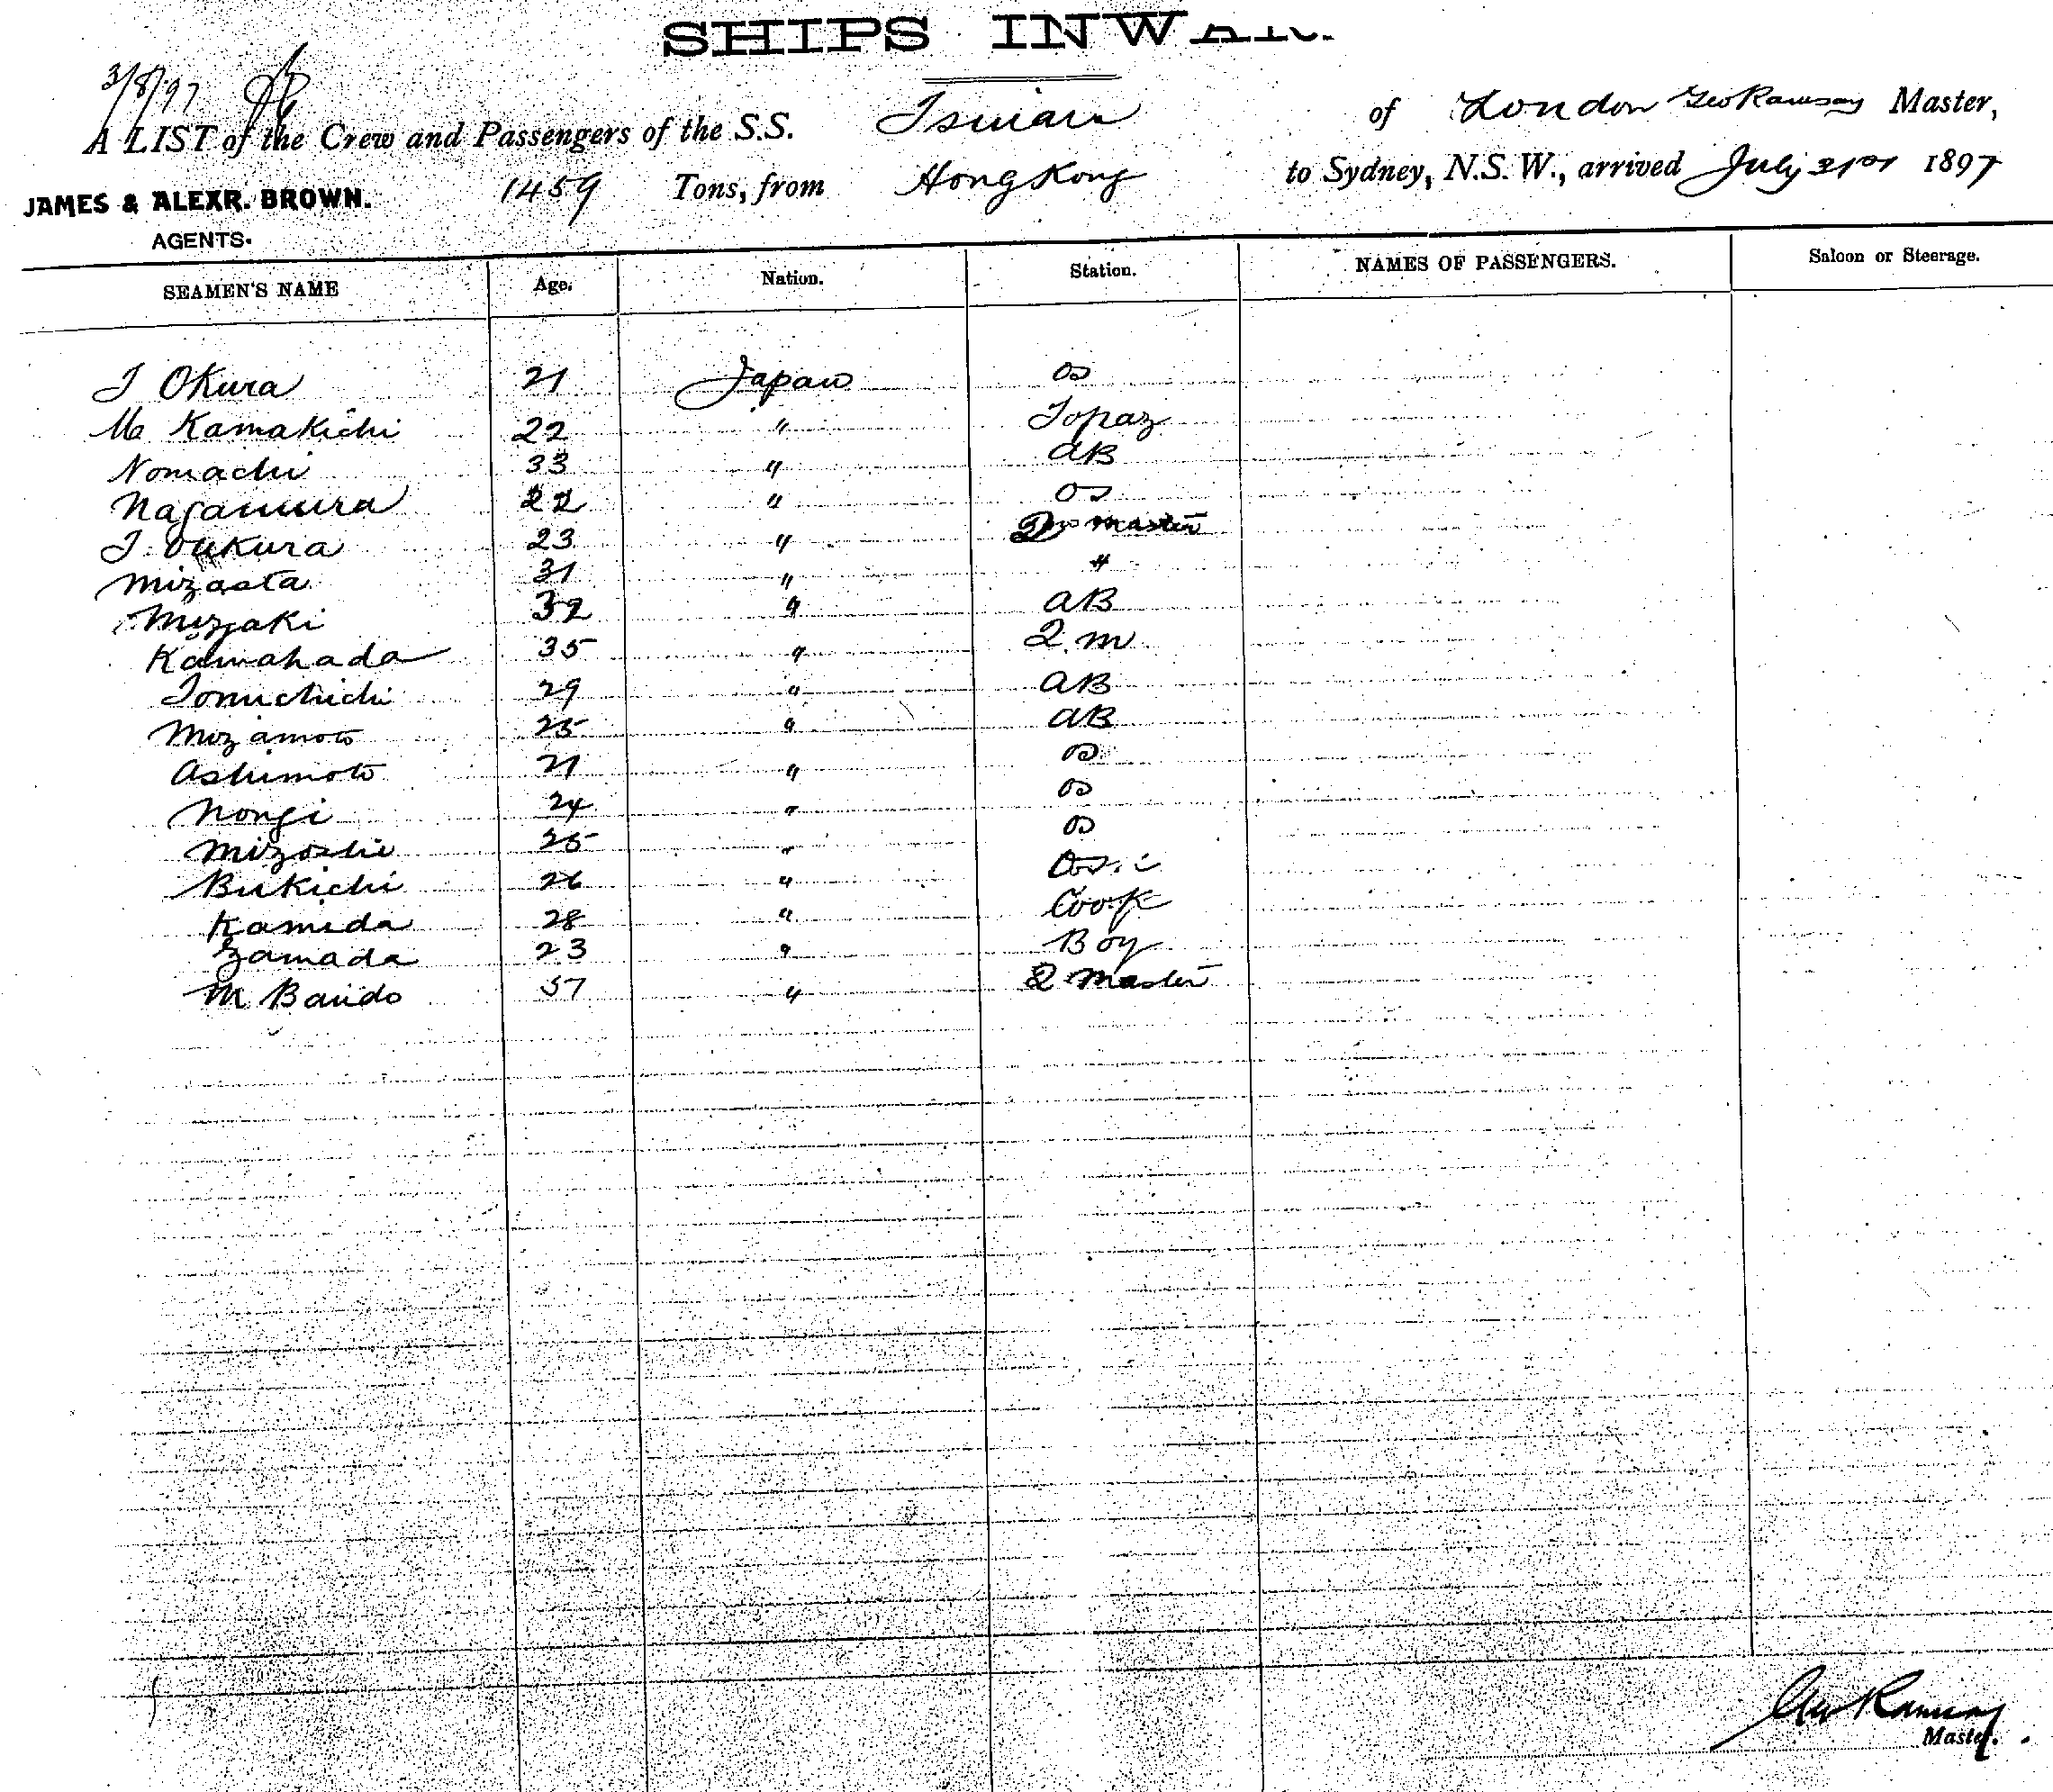 SHIPS INWAR
3/8/97
A LIST of the Crew and Passengers of the S.S. Tsinan of London Geo Ramsay Master,
JAMES & ALEXR. BROWN. 1459 Tons, from Hong Kong to Sydney, N.S.W., arrived July 31st 1897
AGENTS.
SEAMEN'S NAME Age. Nation. Station. NAMES OF PASSENGERS. Saloon or Steerage.
J Okura 21 Japan OS
M Kamakichi 22 " Topaz
Nomachi 33 " AB
Nagamura 22 " OS
23 " Master
Mizaata 31 " "
Mizaki 32 " AB
Kamahada 35 " Q. M
Tomichichi 29 " AB
Mizamoto 25 " AB
Ashimoto 21 " OS
Nongi 24 " OS
Mizoshi 25 " OS
Bukichi 26 "
Kamida 28 " Cook
Zamada 23 " Boy
M Bando 37 " Q Master
Geo Ramsay
Master.